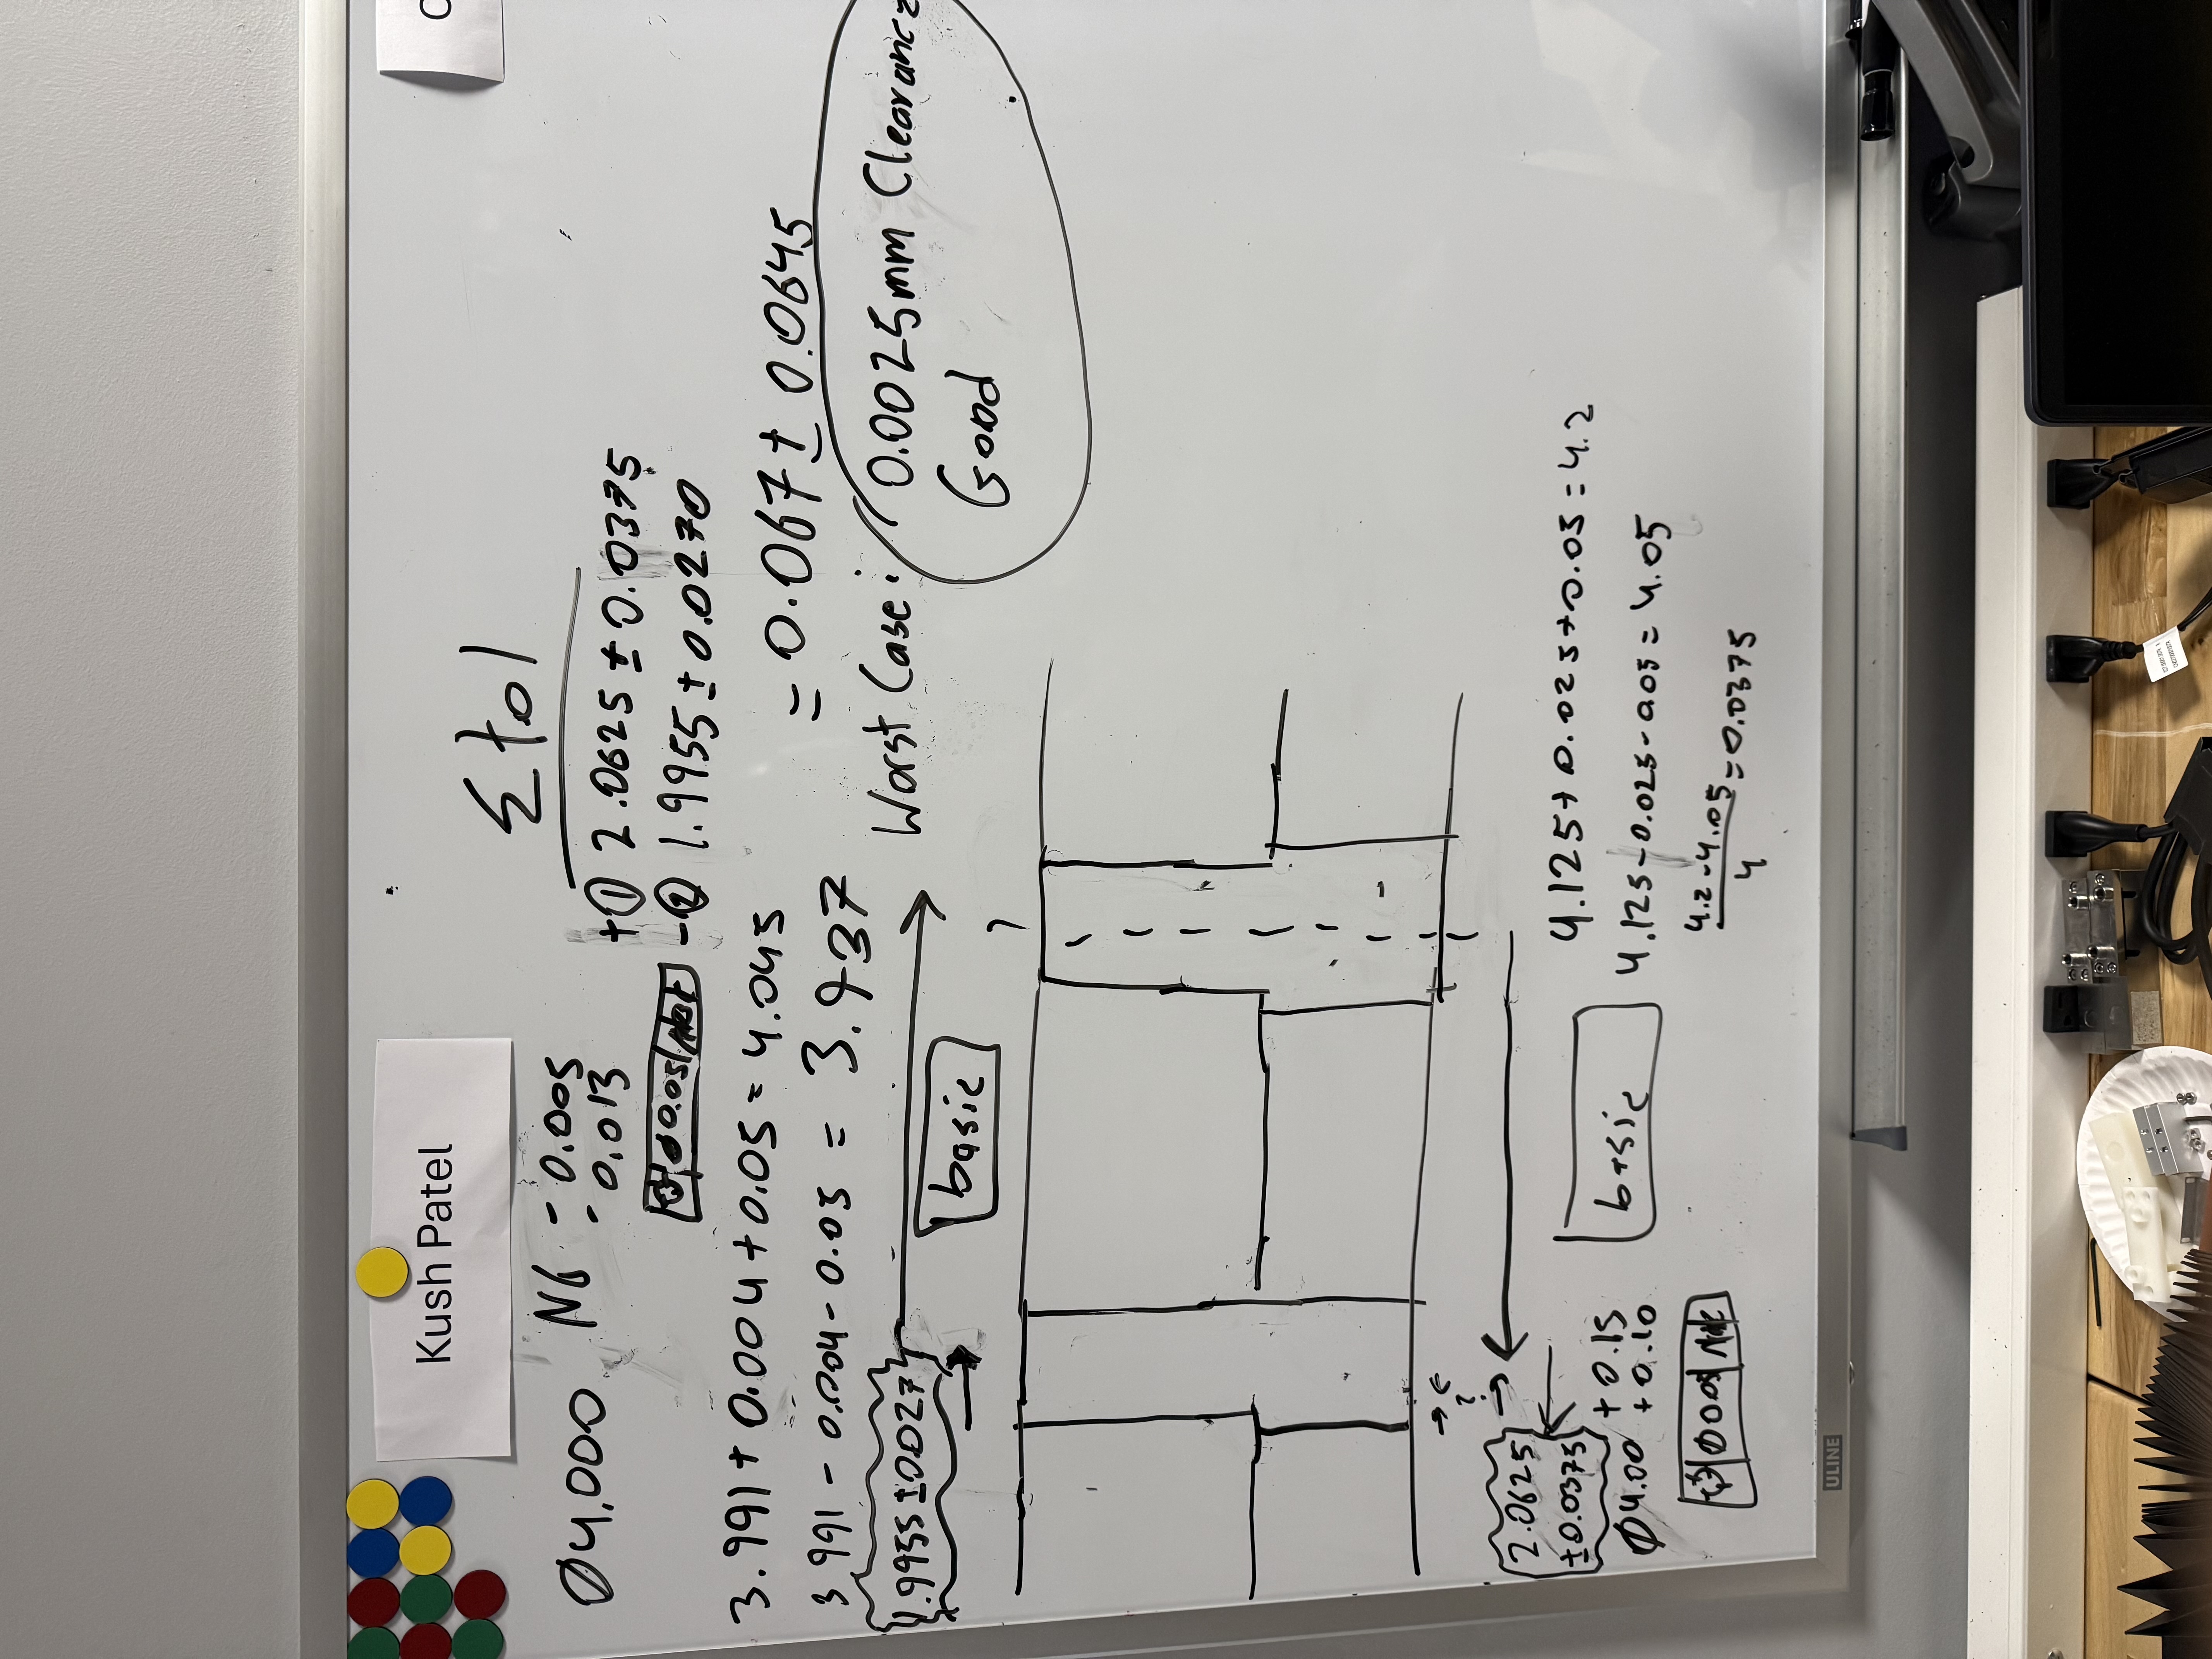 C
Kush Patel
Σ tol
Ø4.000 N6 - 0.005
- 0.013
⌖ Ø0.05 MMC
+① 2.0625 ± 0.0375
-② 1.9955 ± 0.0270
3.991 + 0.004 + 0.05 = 4.045
= 0.067 ± 0.0645
3.991 - 0.004 - 0.05 = 3.937
Worst Case: 0.0025mm Clearance
Good
1.9955 ± 0.027
basic
?
2.0625
±0.0375
Ø4.00 +0.15
+0.10
basic
4.125 + 0.025 + 0.05 = 4.2
4.125 - 0.025 - 0.05 = 4.05
4.2 - 4.05 = 0.0375
4
ULINE